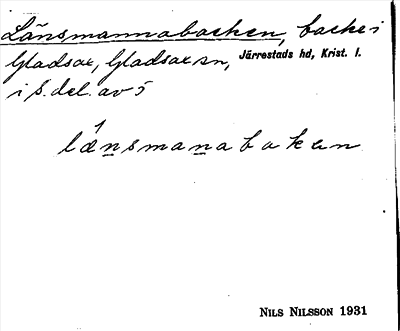 Länsmannabacken, backe i
Gladsax, Gladsax sn, Järrestads hd, Krist. l.
i S. del. av 5
lænsmanabakan
NILS NILSSON 1931